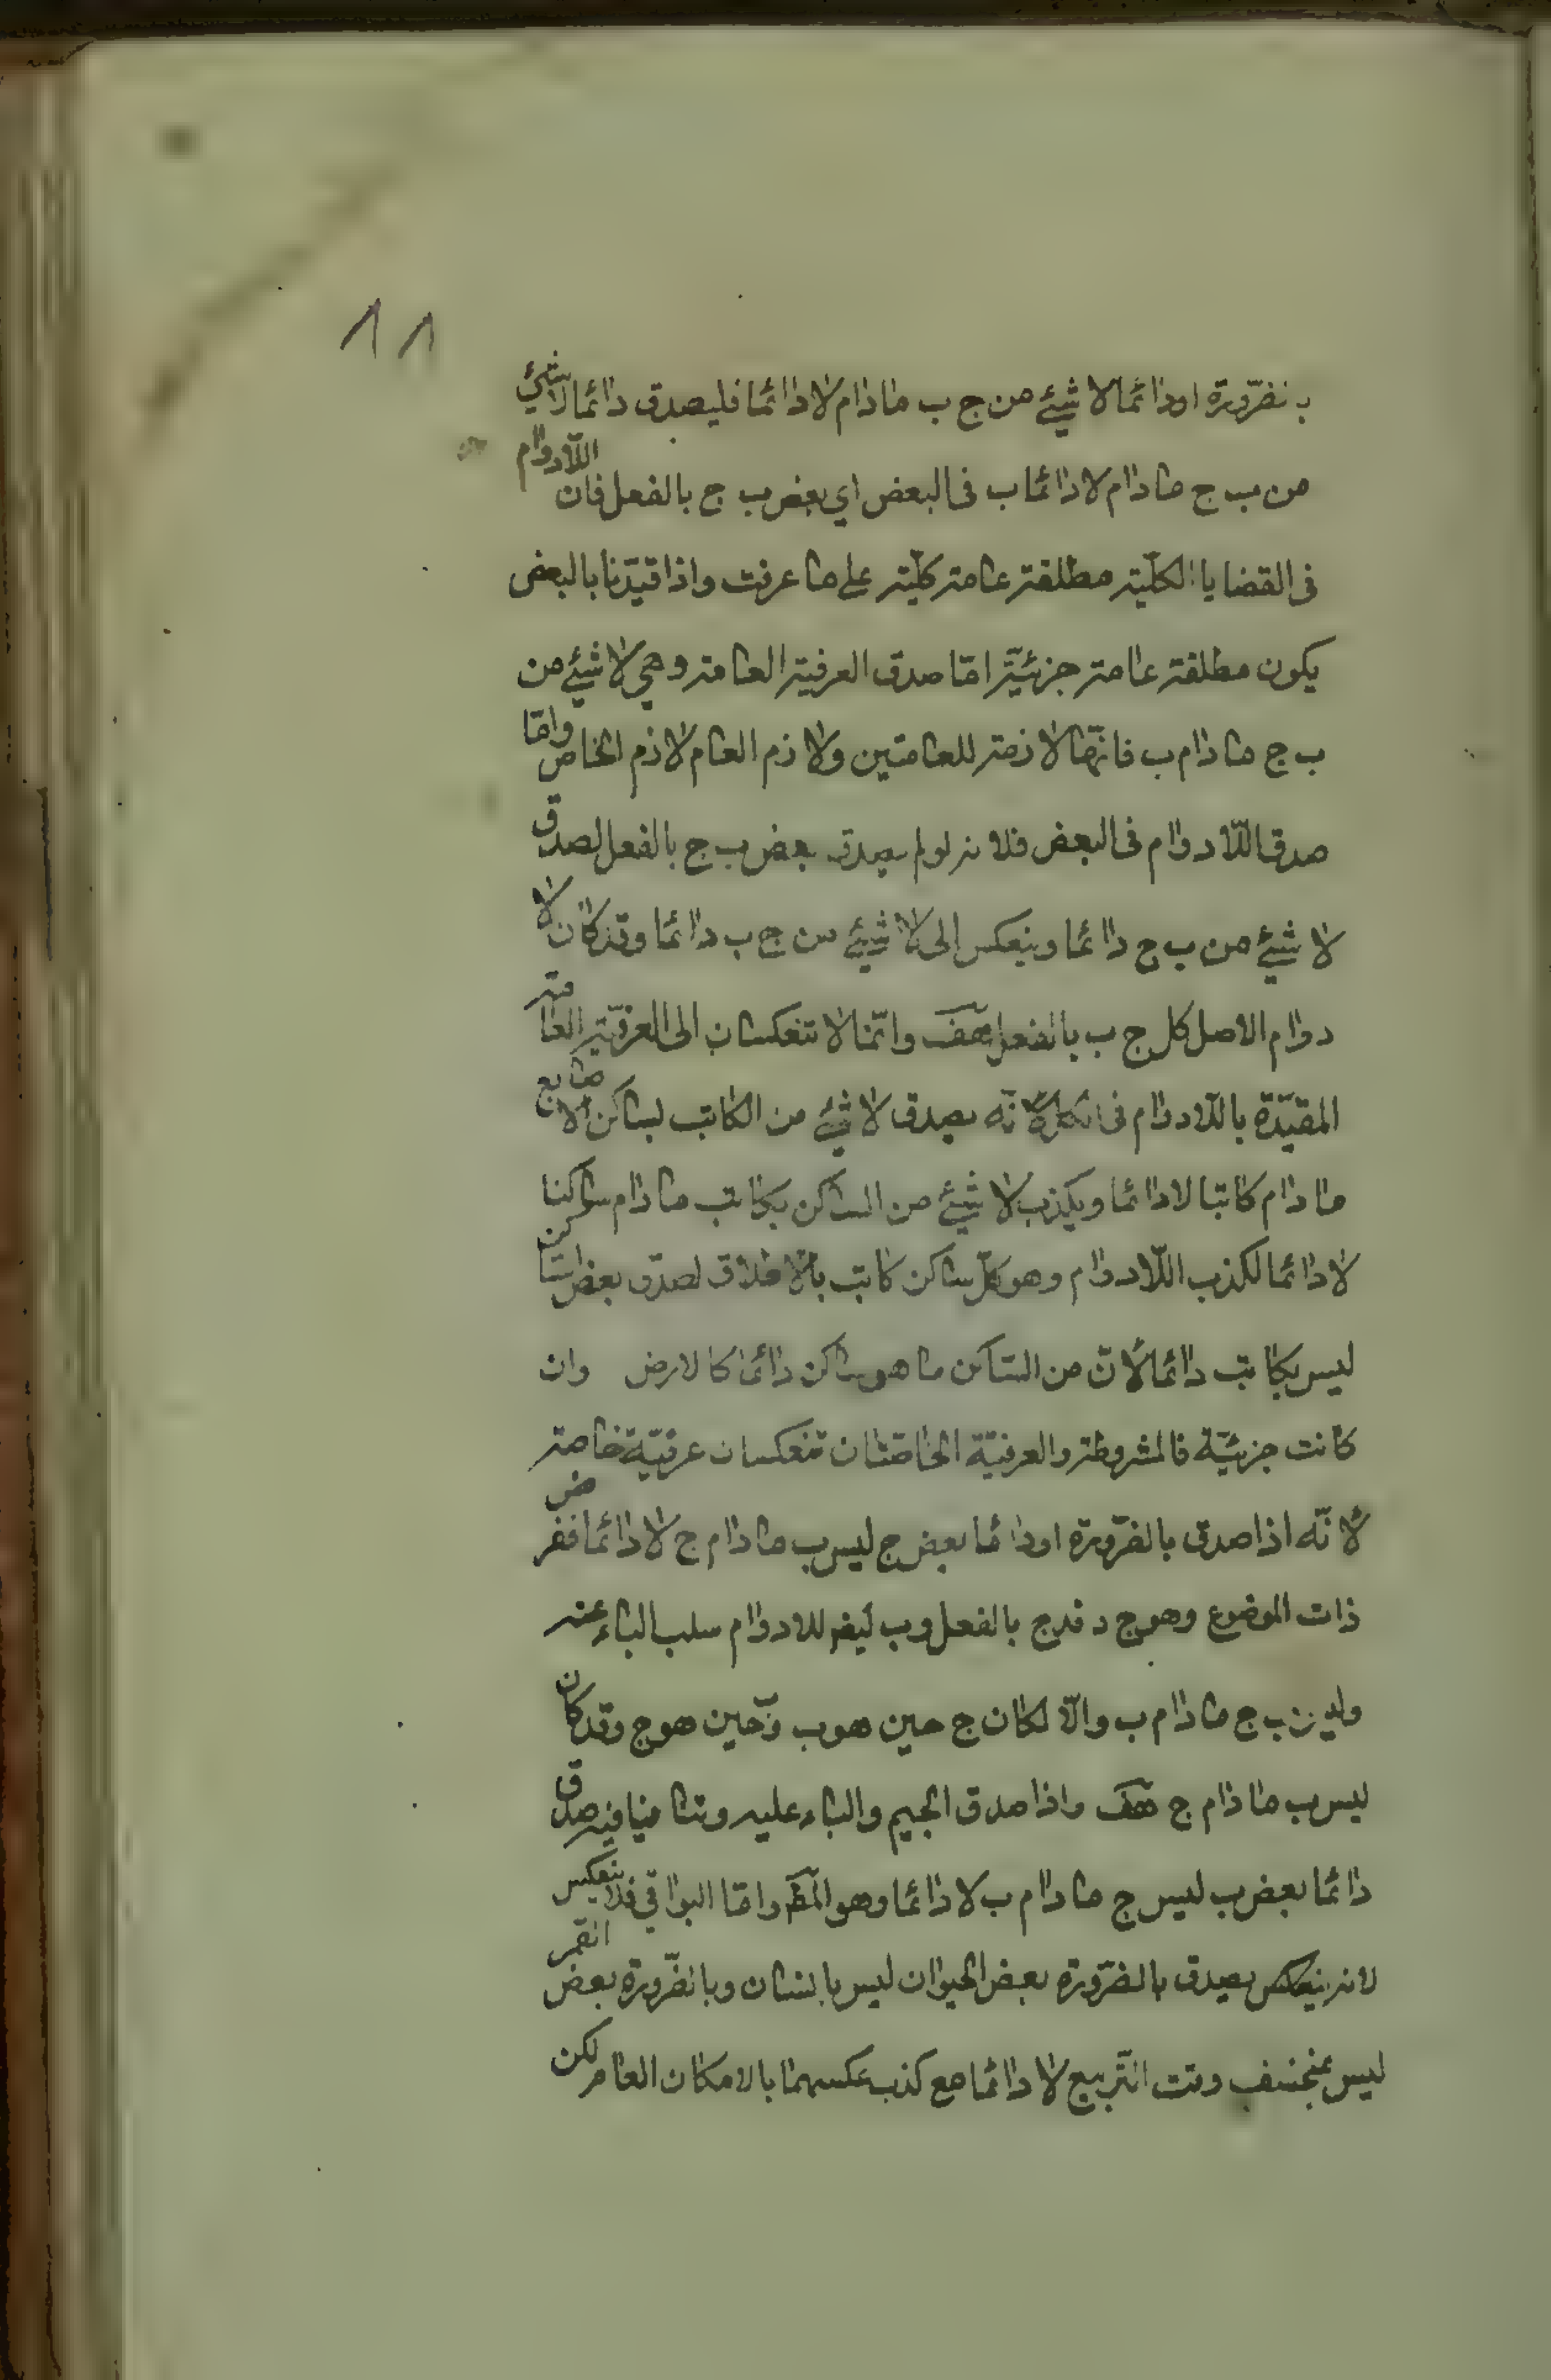 ٨٨
بالضّرورة اودائما لا شيئ من ج ب مادام لا دائما فليصدق دائما لا شيئ
من ب ج مادام لا دائما ب فى البعض اي بعض ب ج بالفعل فان اللّادوام
فى القضايا الكلّيّة مطلقة عامة كلّية على ما عرفت واذا قيّدنا بالبعض
يكون مطلقة عامة جزئيّة امّا صدق العرفية العامة وهي لا شيئ من
ب ج مادام ب فانّها لازمة للعامتين ولازم العام لازم الخاص وامّا
صدق اللّادوام فى البعض فلانه لو لم يصدق بعض ب ج بالفعل لصدق
لا شيئ من ب ج دائما وينعكس الى لا شيئ من ج ب دائما وقد كان لا
دوام الاصل كل ج ب بالفعل هف وانّما لا تنعكسان الى العرفيّة العامة
المقيّدة باللّادوام فى الكل لانّه يصدق لا شيئ من الكاتب بساكن الاصابع
مادام كاتبا لا دائما ويكذب لا شيئ من الساكن بكاتب مادام ساكنا
لا دائما لكذب اللّادوام وهو كلّ ساكن كاتب بالاطلاق لصدق بعض الساكن
ليس بكاتب دائما لانّ من الساكن ما هو ساكن دائما كالارض وان
كانت جزئيّة فالمشروطة والعرفيّة الخاصّتان تنعكسان عرفيّة خاصة
لانّه اذا صدق بالضّرورة اودائما بعض ج ليس ب مادام ج لا دائما ففرض
ذات الموضوع وهو ج د فدج بالفعل وب ايضا لللادوام سلب الباء عنه
وليس ج مادام ب والّا لكان ج حين هو ب وب حين هو ج وقد كان
ليس ب مادام ج هف واذا صدق الجيم والباء عليه وتنافيا فيه صدق
دائما بعض ب ليس ج مادام ب لا دائما وهو المط وامّا البواقي فلا ينعكس
لانه ينعكس يصدق بالضّرورة بعض الحيوان ليس بانسان وبالضّرورة بعض القمر
ليس بمنخسف وقت التّربيع لا دائما مع كذب عكسهما بالامكان العام لكن